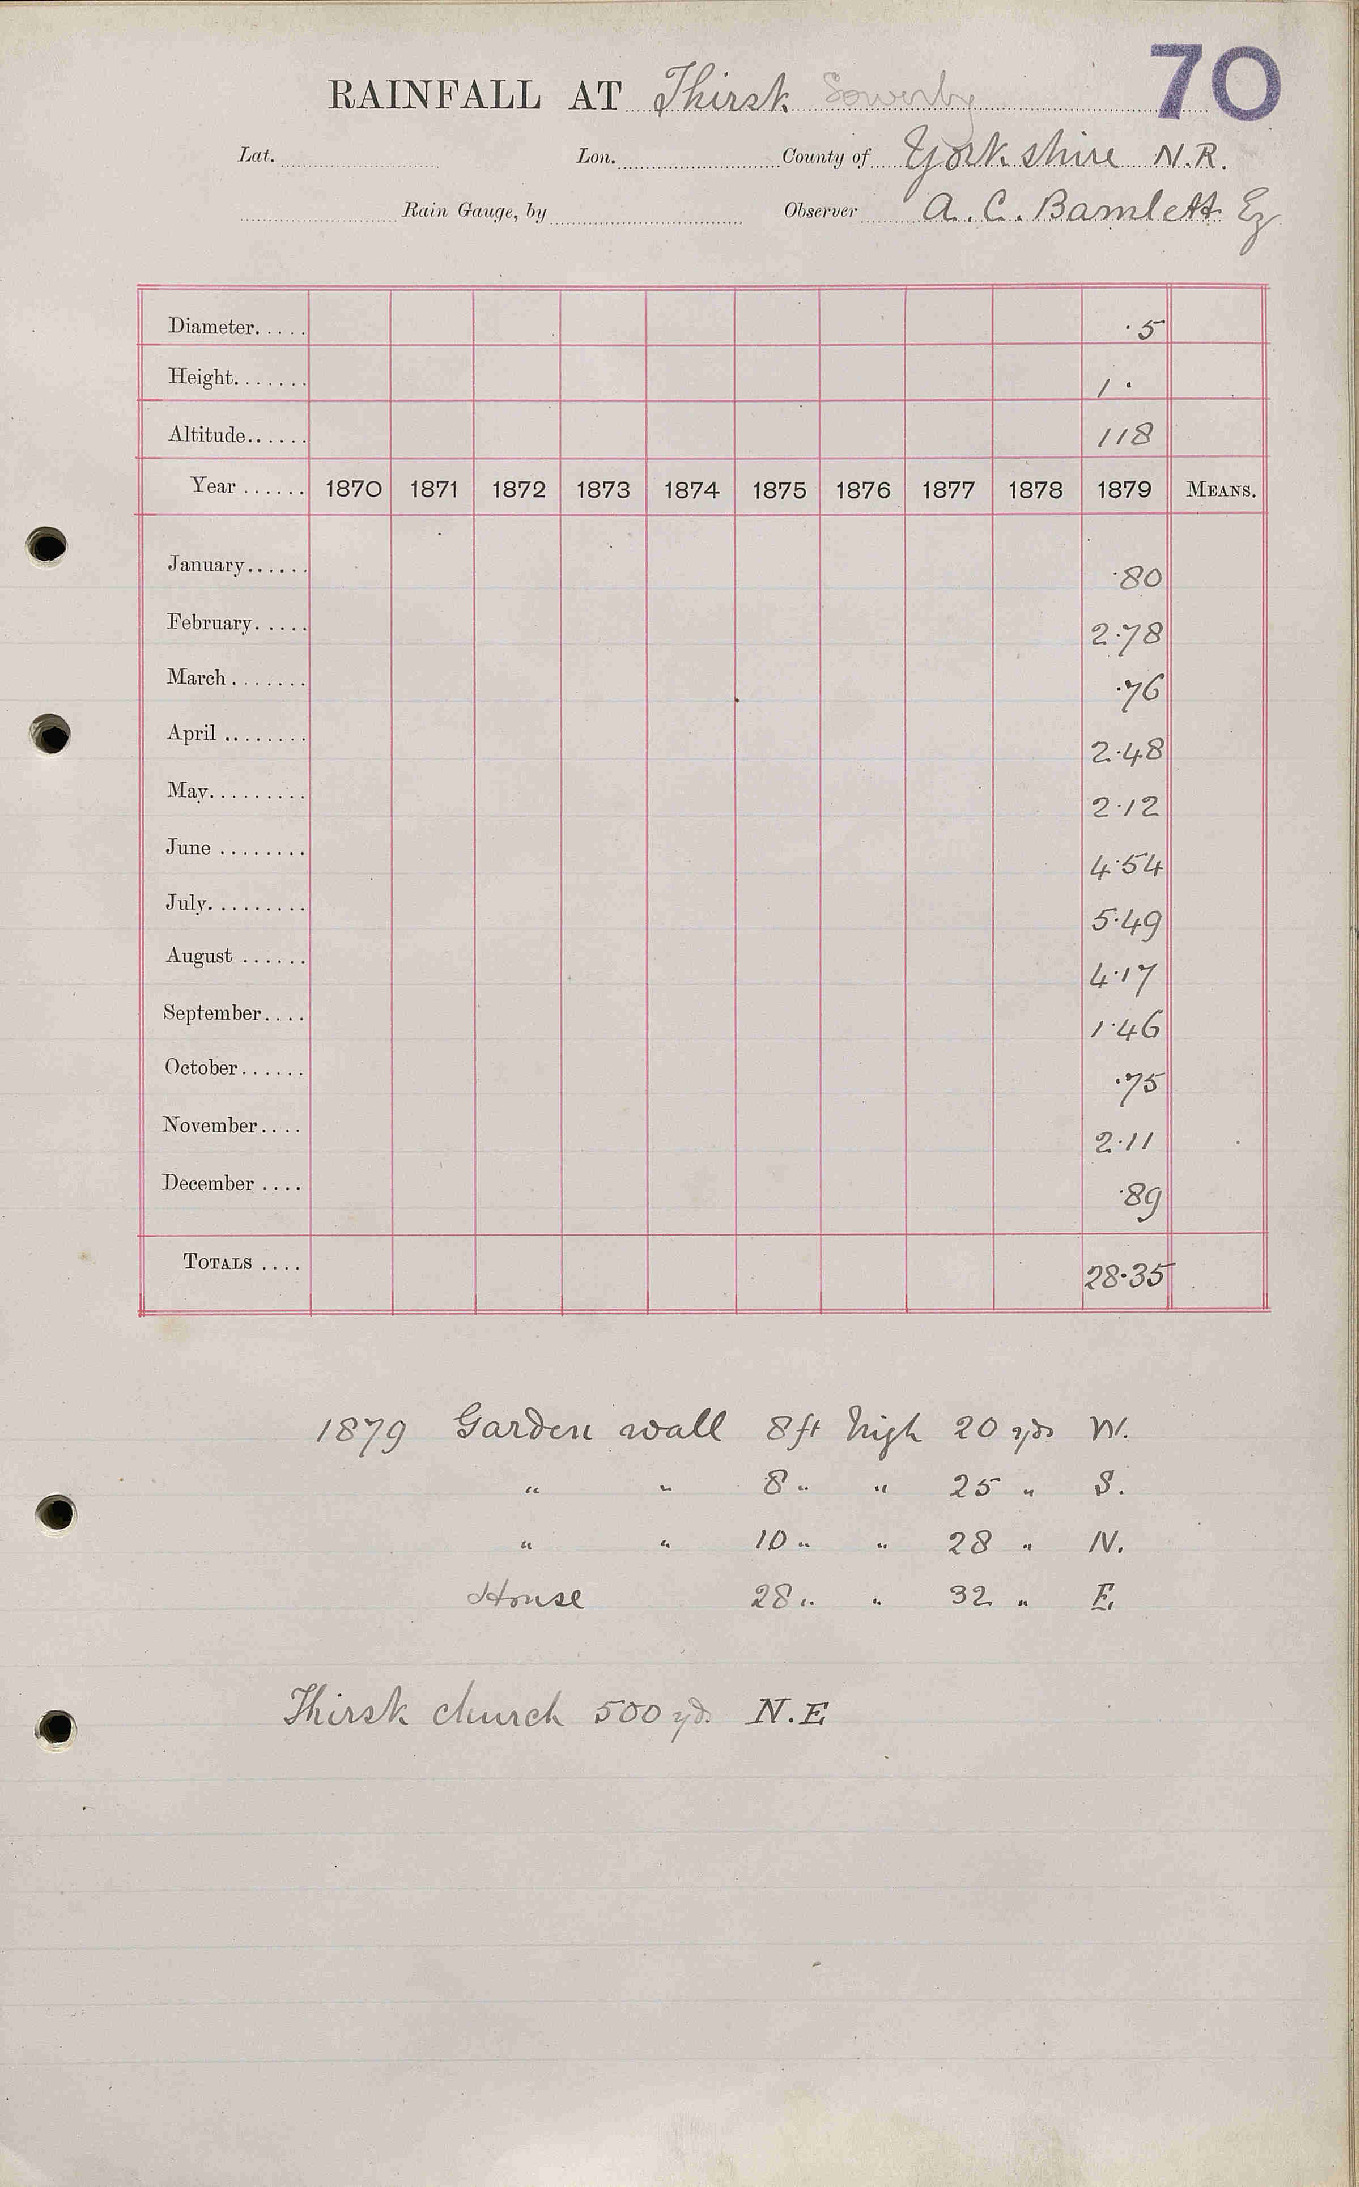 70
RAINFALL AT Thirsk Sowerby
Lat. Lon. County of Yorkshire N.R.
Rain Gauge, by Observer A. C. Bamlett Esq
Diameter..... ·5
Height....... 1·
Altitude...... 118
Year ...... 1870 1871 1872 1873 1874 1875 1876 1877 1878 1879 MEANS.
January...... ·80
February..... 2·78
March ....... ·76
April ........ 2·48
May......... 2·12
June ........ 4·54
July......... 5·49
August ...... 4·17
September.... 1·46
October...... ·75
November.... 2·11
December .... ·89
TOTALS .... 28·35
1879 Garden wall 8 ft high 20 yds W.
" " 8 " " 25 " S.
" " 10 " " 28 " N.
House 28 " " 32 " E.
Thirsk church 500 yds. N.E